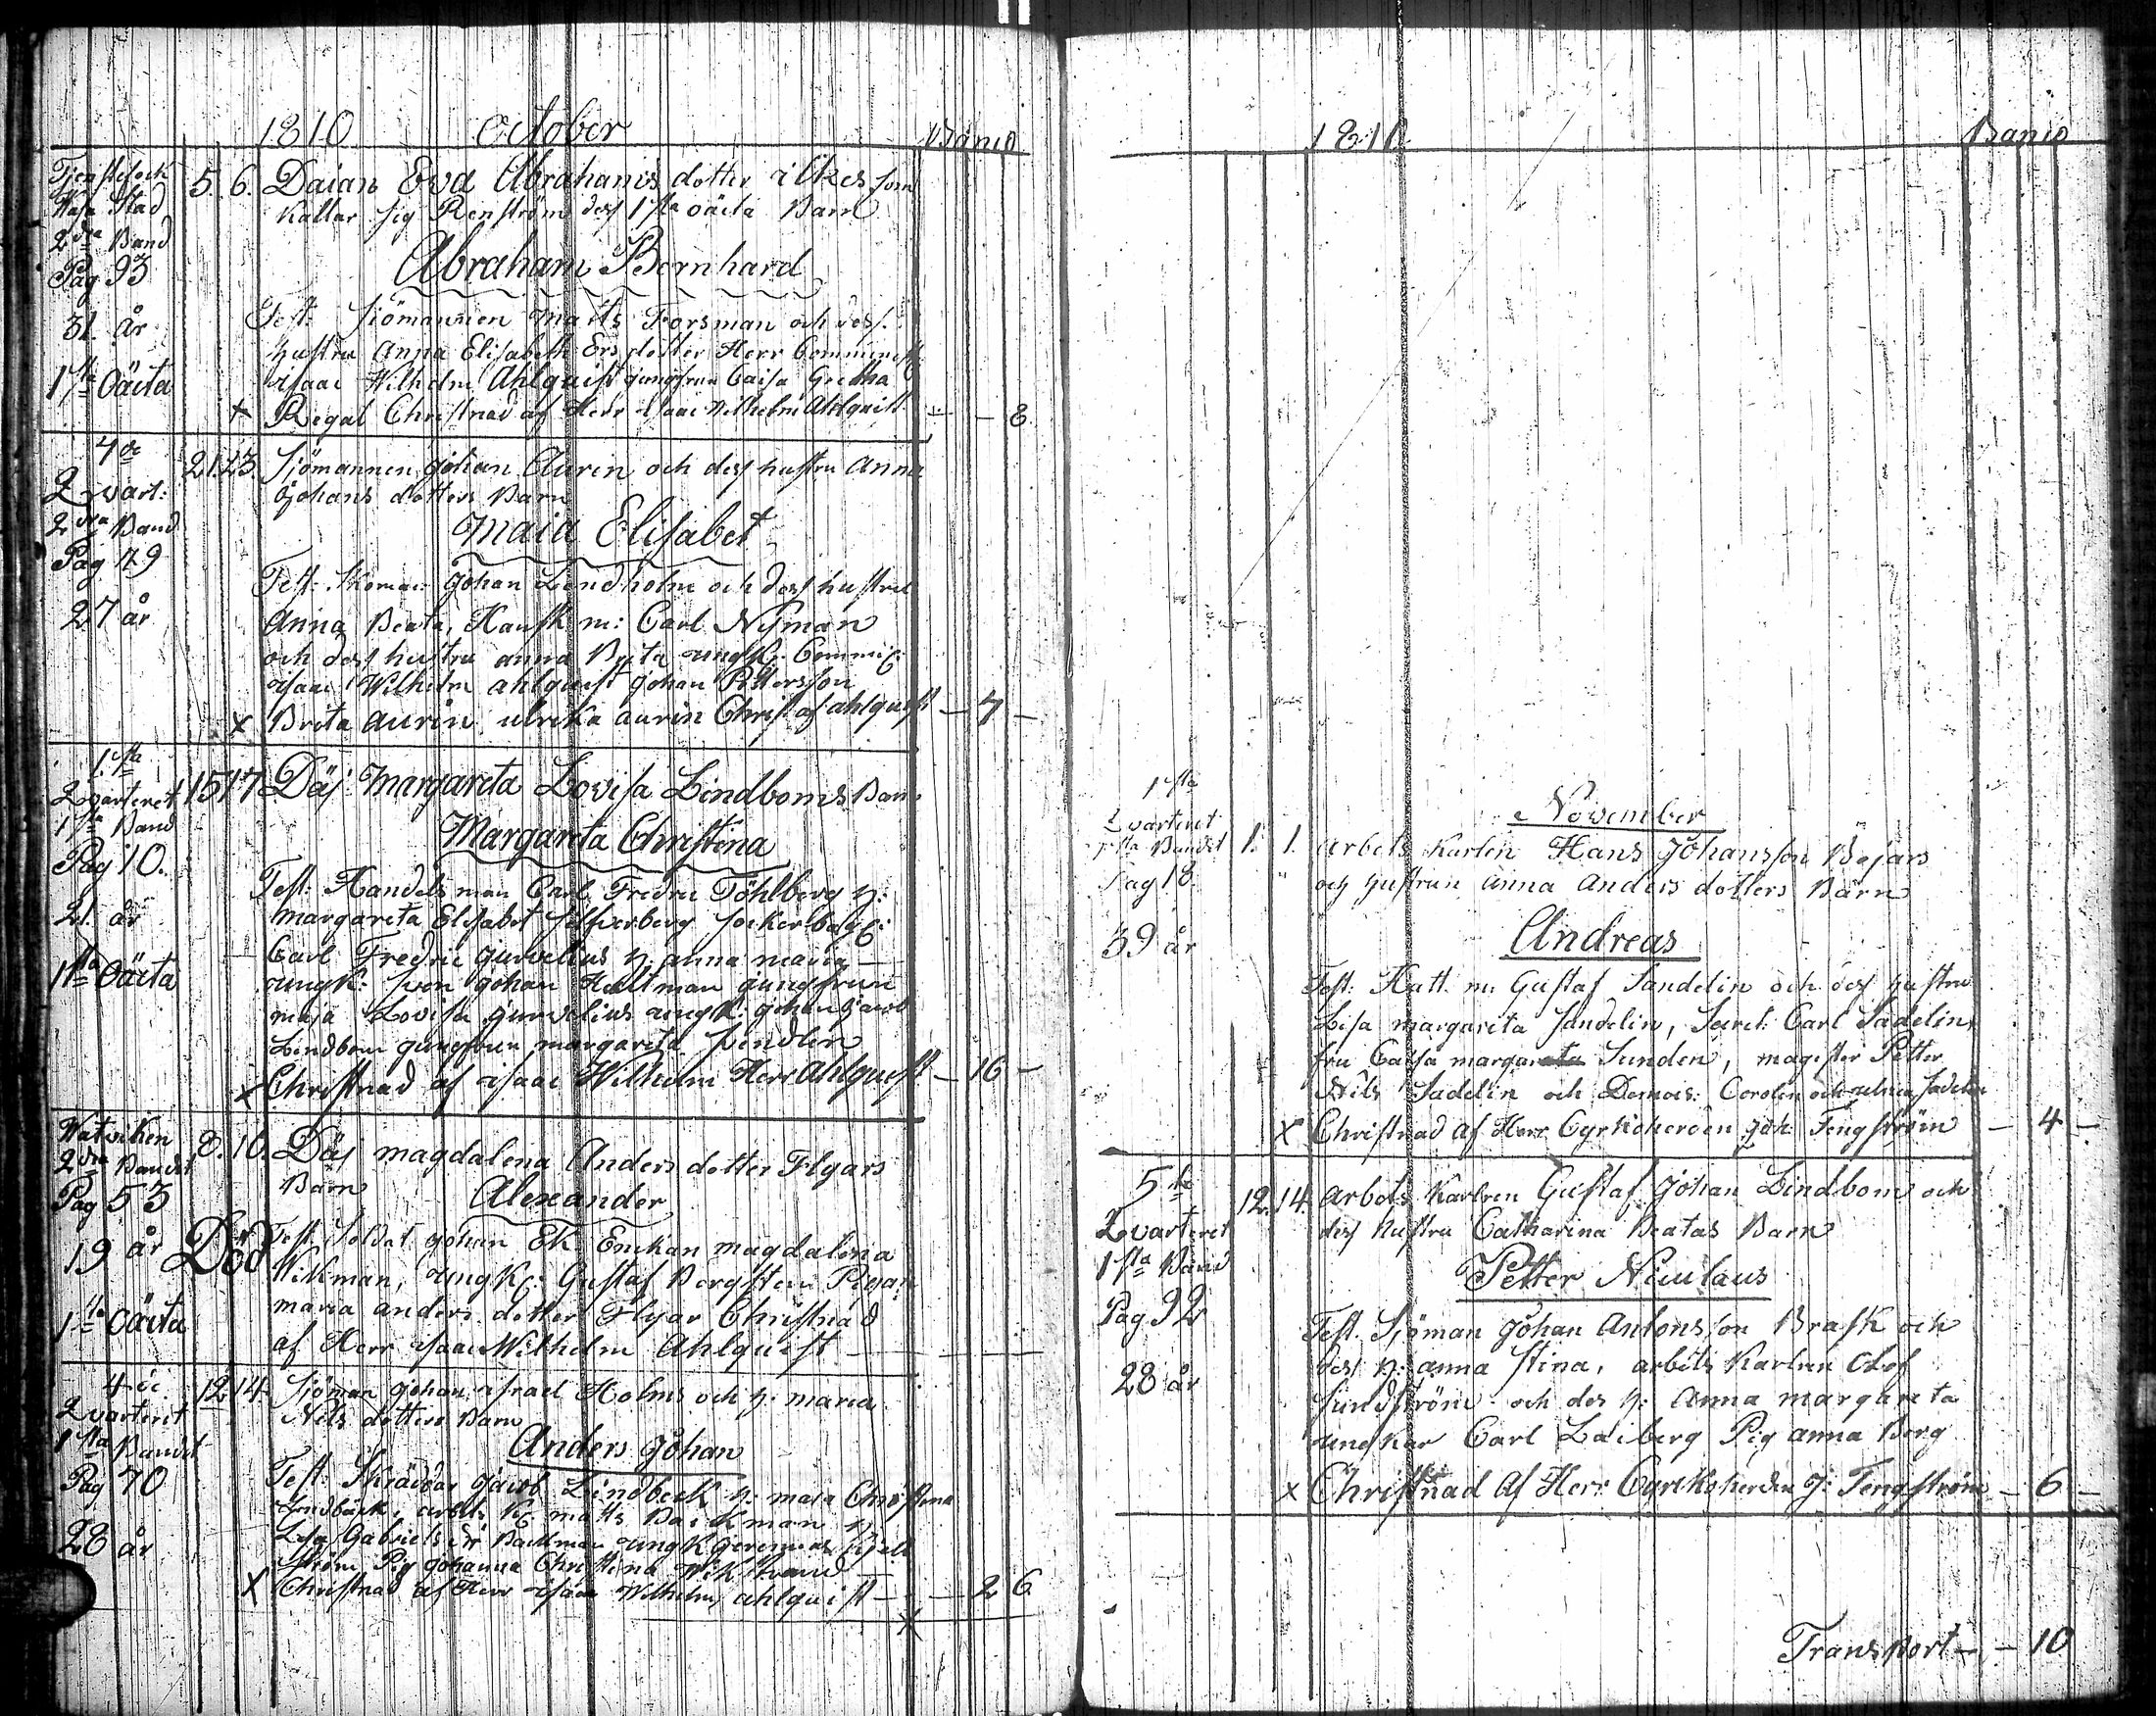 1810 October Banco
Tjenstefock
Wasa Stad
2dra Band
Pag 93
31. år
1sta Oäcta
5. 6. Daian Eva Abrahams dotter ilkes som
Kallar sig Renström des 1sta oäcta Barn
Abraham Bernhard
Test: Siömannen Matts Forsman och des
hustru Anna Elisabeth Ers dotter Herr Comminist
isaac Wilhelm Ahlquist jungfrun Caisa Gretha
x Regal Christnad af Herr isaac Wilhelm Ahlquist - 8
4de
2 vart:
2dra Band
Pag 49
27 år
21. 23. Sjömannen johan Aurin och des hustru Anna
Johans dotters Barn
Maia Elisabet
Test: Skomac: Johan Lindholm och des hustru
Anna Beata, Hansk m: Carl Nyman
och des hustru anna Brita ungk: Commi:
isaac Wilhelm ahlquist Johan Pettersson
x Brita aurin ulrika aurin Christ af ahlquist - 7 -
1sta
2varteret
1sta Band
Pag 10.
21. år
1sta Oäcta
15 17 Däj Margareta Lovisa Lindboms Barn
Margareta Christina
Test: Handels man Carl Fredric Töhlberg h:
margareta Elisabet Silfverberg Socker bag:
Carl Fredric gurvelius h: anna maria
ungk: Sven johan Hultman jungfrun
maja Lovisa gurvelius ungk: johan Jacob
Lindbom jungfrun margareta
x Christnad af isaac Wilhelm Herr Ahlquist - 16 -
Watviken
2dra Bandet
Pag 53
19 år Död
1sta Oäcta
8. 10. Däj magdalena Anders dotter Flyars
Barn Alexander
Test Soldat johan Ek Enckan magdalena
Wikman, ungk: Gustaf Bergsten Pigan
maria anders dotter Flyar Christnad
af Herr isaac Wilhelm Ahlquist
4de
2varteret
1sta Bandet
Pag 70
28 år
12 14 Sjöman johan israel Holms och h: maria
Nils dotters Barn
Anders Johan
Test: Skrädar jacob Lindbeck h: maia Christina
Lindbäck, arbets k: matts Backman h:
Lisa Gabriels dr Backman ungk jeremias
ström Pig johanna Christina Wikstrand
x Christnad af Herr isaac Wilhelm ahlquist - 2 6
1810 Banco
November
1sta
2varteret
1sta Bandet
Pag 18.
39 år
1. 1. Arbets Karlen Hans Johansson Böjars
och hustrun Anna Anders dotters Barn
Andreas
Test: Hatt m: Gustaf Sandelin och des hustru
Lisa margareta Sandelin, Secret: Carl Sadelin
fru Caisa margareta Sunden, magister Petter
Nils Sadelin och Demois: Carolin och Sadelin
x Christnad af Herr Cyrkoherden Joh: Tengström - 4 -
5te
2varteret
1sta Band
Pag 92
28 år
12. 14. Arbets Karlen Gustaf Johan Lindbom och
des hustru Catharina Beatas Barn
Petter Niculaus
Test. Sjöman Johan Antonsson Brask och
des h: anna Stina, arbets Karlen Olof
Sundström och des h: Anna margareta
ungkar Carl Laiberg Pig anna Borg
x Christnad Af Herr Cyrckoherden J: Tengström - 6 -
Transport - - 10